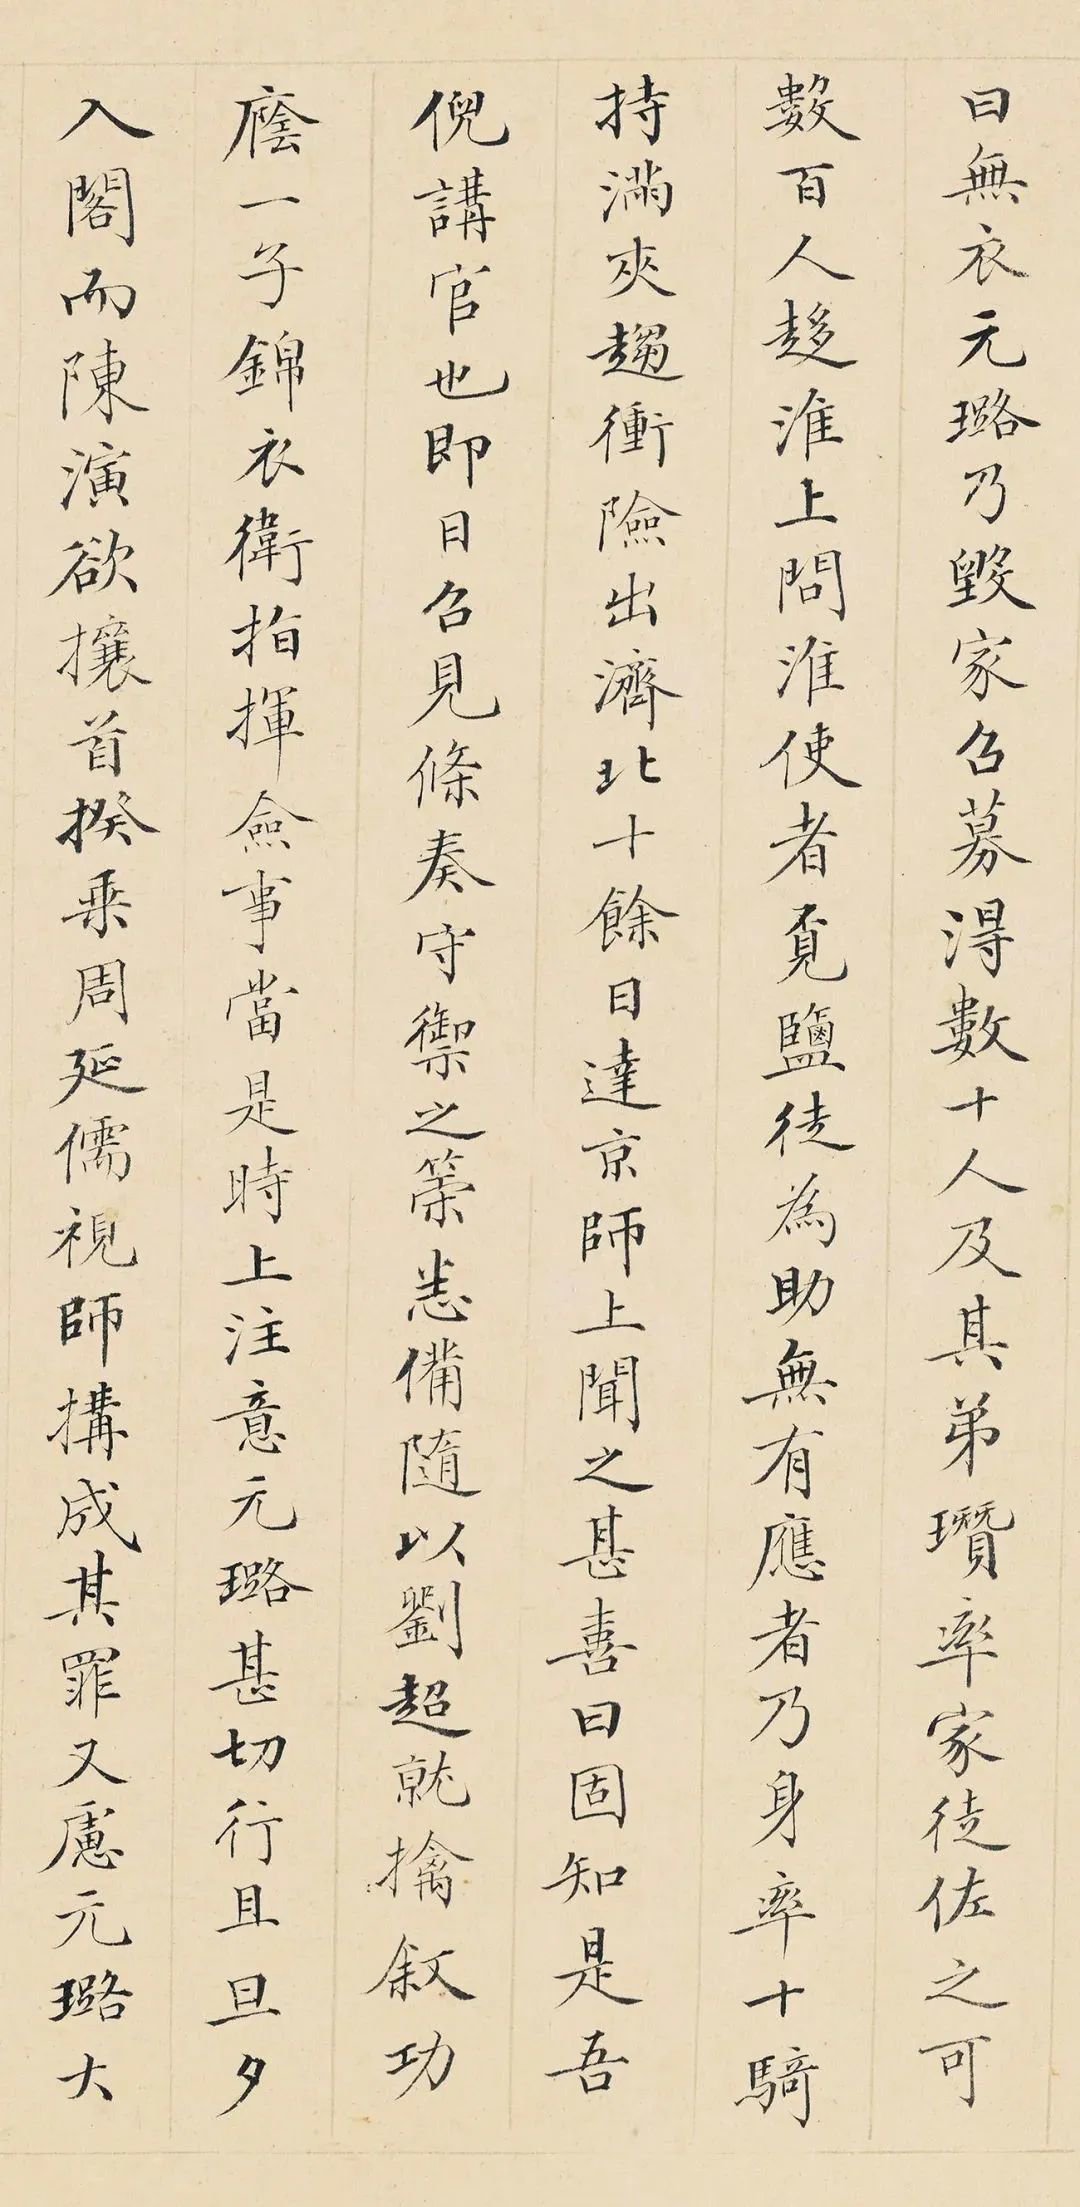 曰無衣元璐乃毀家召募得數十人及其弟瓚率家徒佐之可
數百人趍淮上問淮使者覓鹽徒為助無有應者乃身率十騎
持滿夾趨衝險出濟北十餘日達京師上聞之甚喜曰固知是吾
倪講官也即日召見條奏守禦之策悉備隨以劉超就擒敘功
廕一子錦衣衛指揮僉事當是時上注意元璐甚切行且旦夕
入閣而陳演欲攘首揆乘周延儒視師搆成其罪又慮元璐大